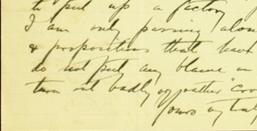 to put up a factory
I am only passing alon
& propositions that have
do not put any blame on
turn out badly or rather "
yours